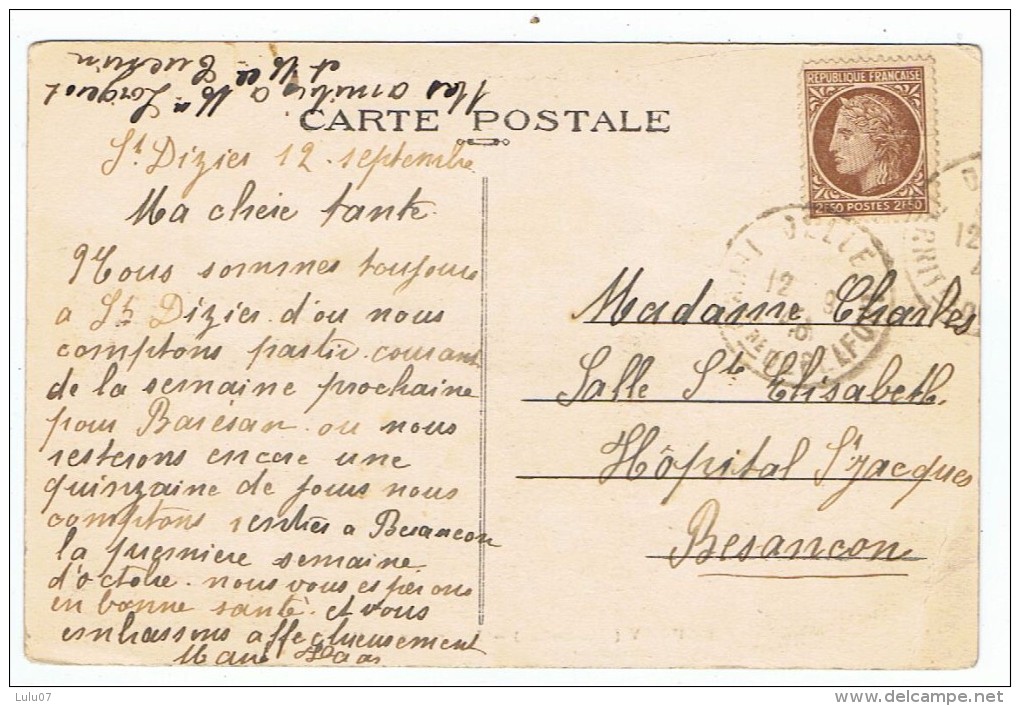 Mes amitiés a Me Lorgerot
et Me Tuetwin
CARTE POSTALE
St Dizier 12 septembre
Ma chère tante
Nous sommes toujours
a St Dizier d'ou nous
comptons partir courant
de la semaine prochaine
pour Baresan ou nous
resterons encore une
quinzaine de jours nous
comptons rentrer a Besancon
la premiere semaine
d'octobre. nous vous esperons
en bonne santé. et vous
embrassons affectueusement
REPUBLIQUE FRANÇAISE
2F50 POSTES 2F50
DELLE
12 9
Madame Charles
Salle Ste Elisabeth
Hôpital St Jacques
Besancon
Lulu07
www.delcampe.net